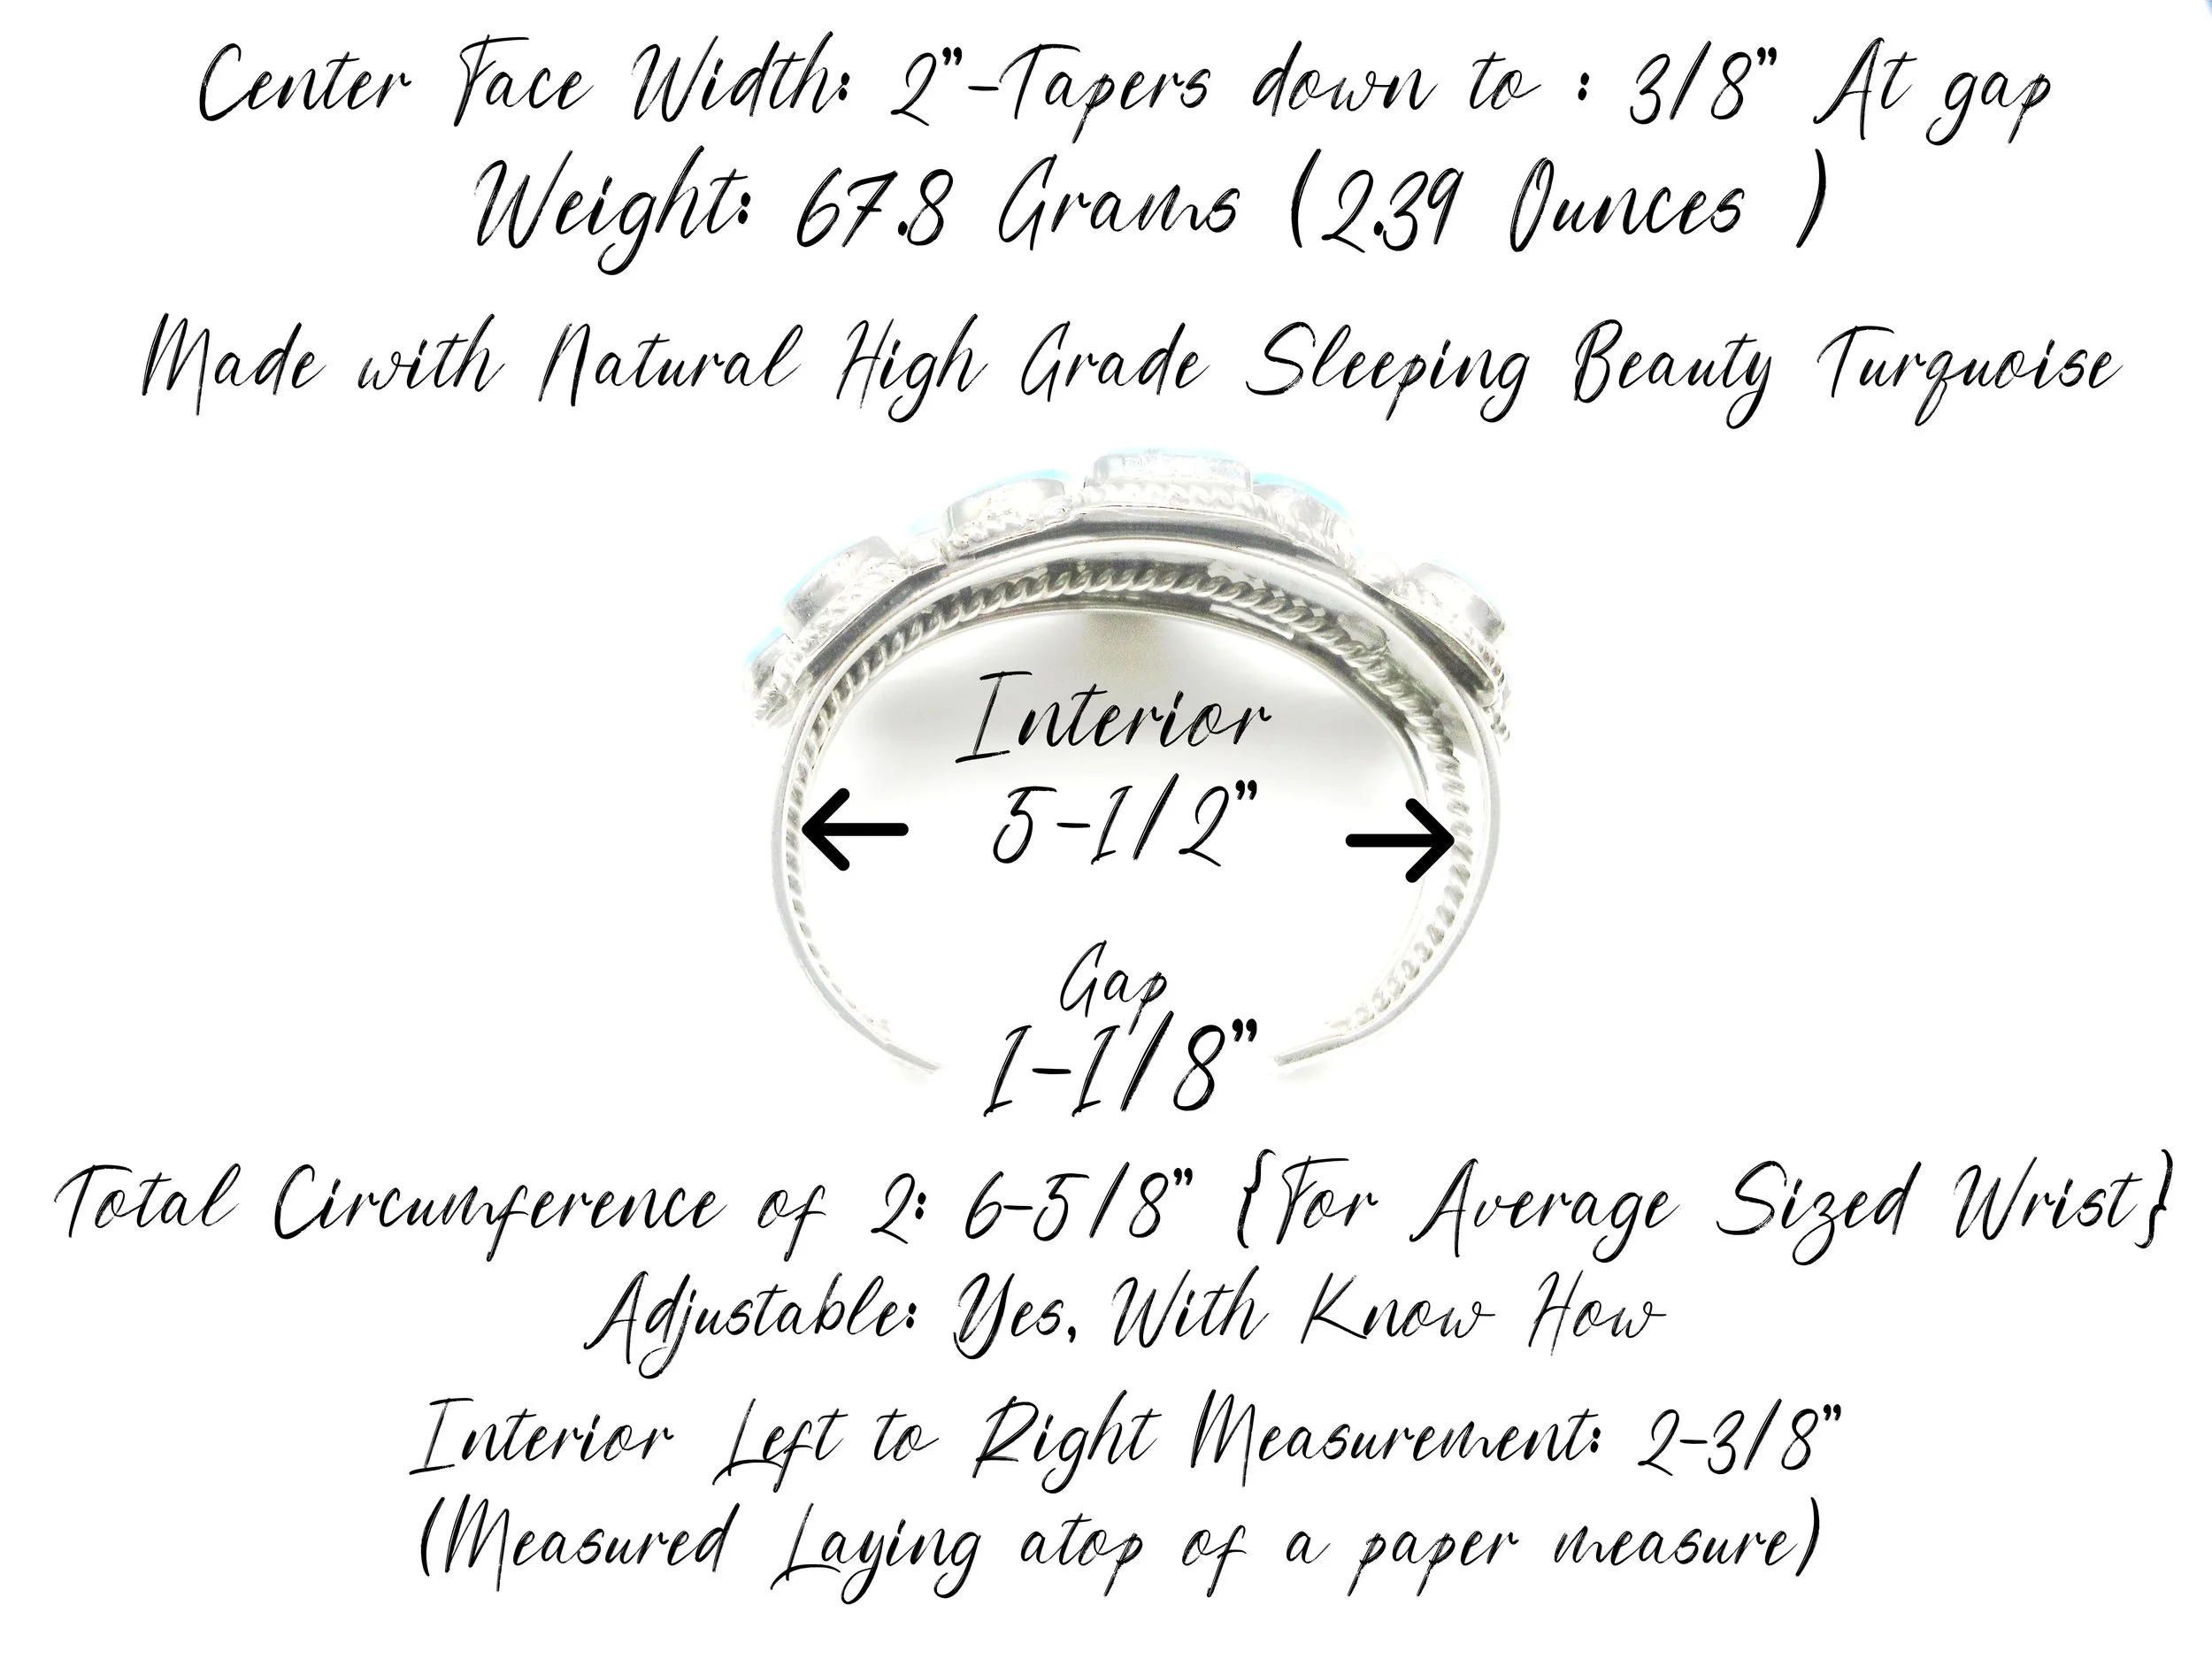 Center Face Width: 2”-Tapers down to : 3/8” At gap
Weight: 67.8 Grams (2.39 Ounces )
Made with Natural High Grade Sleeping Beauty Turquoise
Interior
5-1/2”
Gap
1-1/8”
Total Circumference of 2: 6-5/8” {For Average Sized Wrist}
Adjustable: Yes, With Know How
Interior Left to Right Measurement: 2-3/8”
(Measured Laying atop of a paper measure)